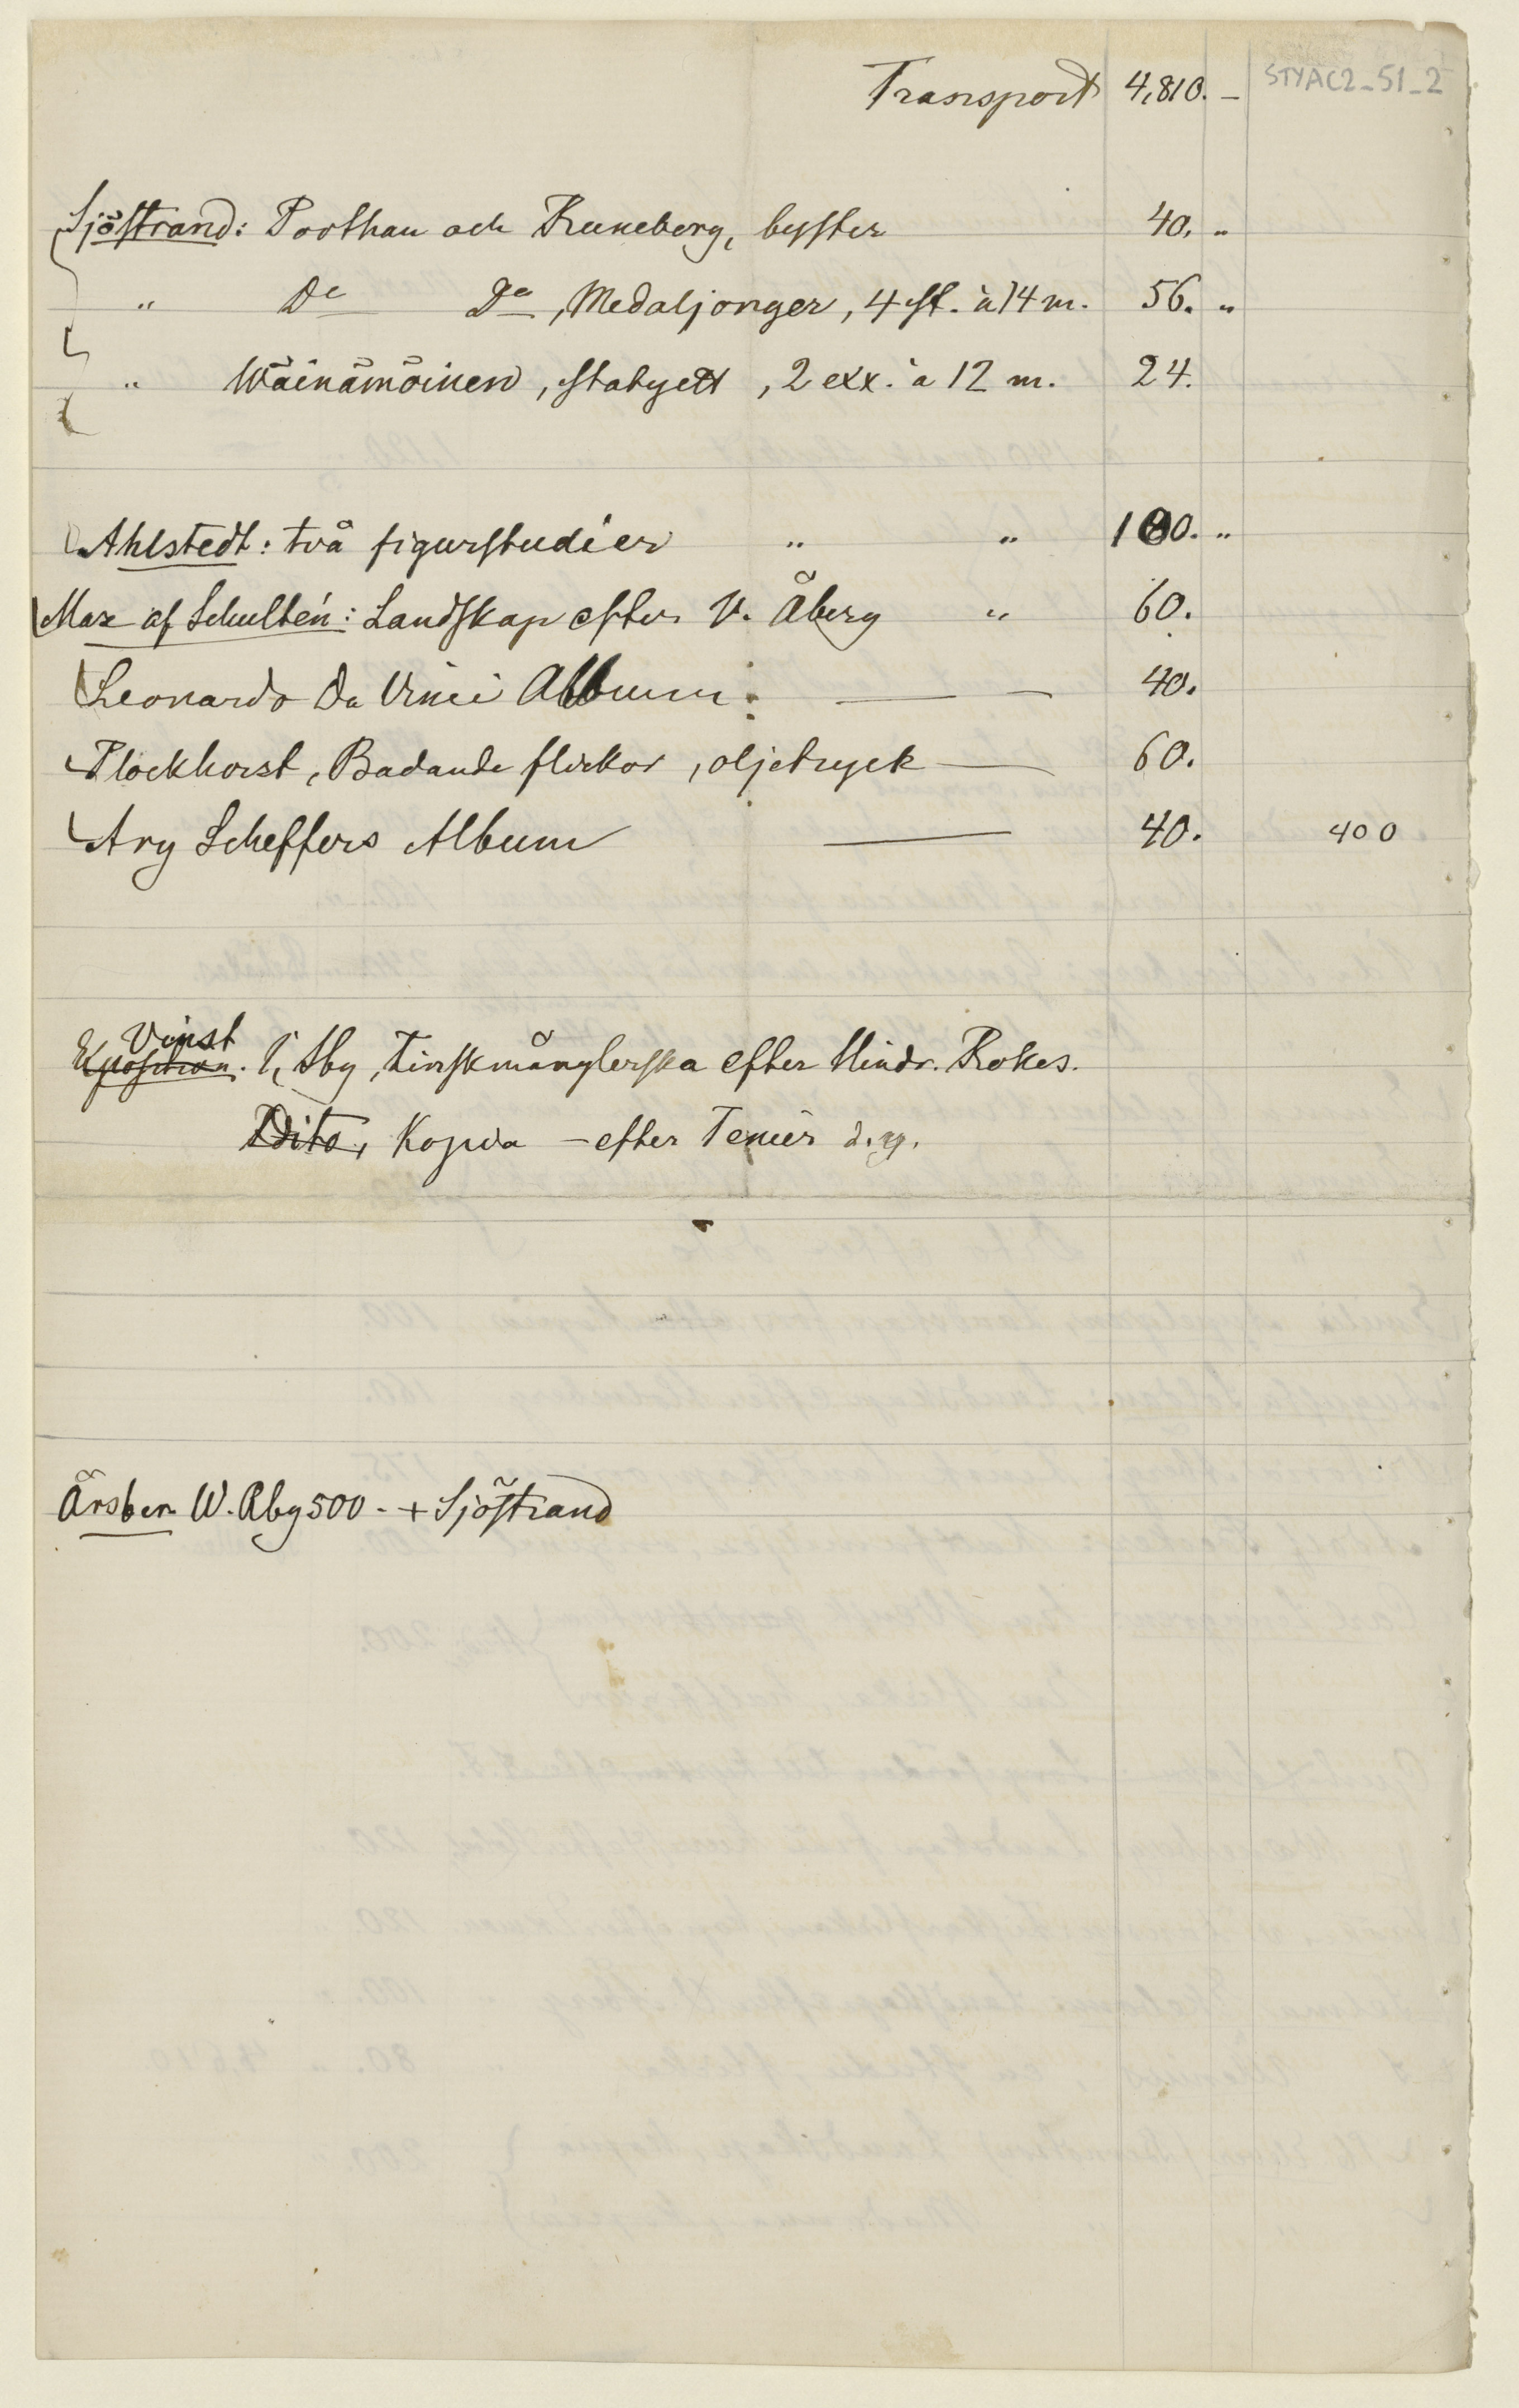 Transport 4,810. — STYAC2_51_2
Sjöstrand: Porthan och Runeberg, byster 40. "
" Do Do, Medaljonger, 4 st. à 14 m. 56. "
" Wäinämöinen, statyett, 2 exx. à 12 m. 24.
Ahlstedt: två figurstudier " " 180. "
Max af Schultén: Landskap efter V. Åberg " 60.
Leonardo Da Vinci Album: — — 40.
Plockhorst, Badande flickor, oljetryck — 60.
Ary Scheffers Album — 40. 400
Vinst
Exposition. 1, Sbg, Fiskmånglerska efter Hindr. Rokes.
Dito, Kopia — efter Teniers d. y.
Årsber W. Abg 500 - + Sjöstrand